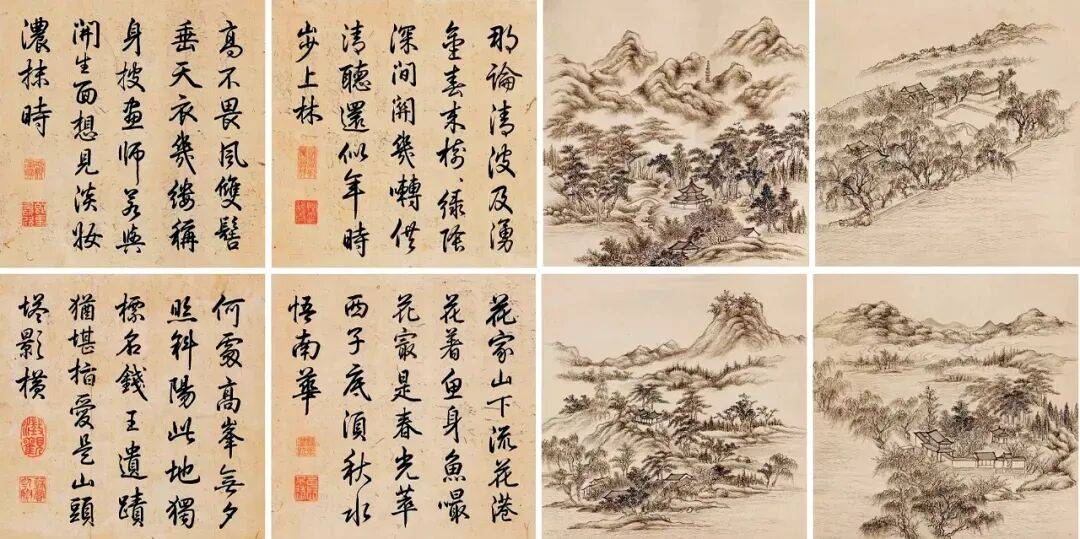 高不畏風雙髻
垂天衣幾縷稱
身披畫師若與
開生面想見淡妝
濃抹時
那論清波及湧
金春來樹〻綠陰
深間關幾囀供
清聽還似年時
步上林
何處高峯無夕
照斜陽此地獨
標名錢王遺蹟
猶堪指愛是山頭
塔影橫
花家山下流花港
花著魚身魚嘬
花最是春光萃
西子底須秋水
悟南華